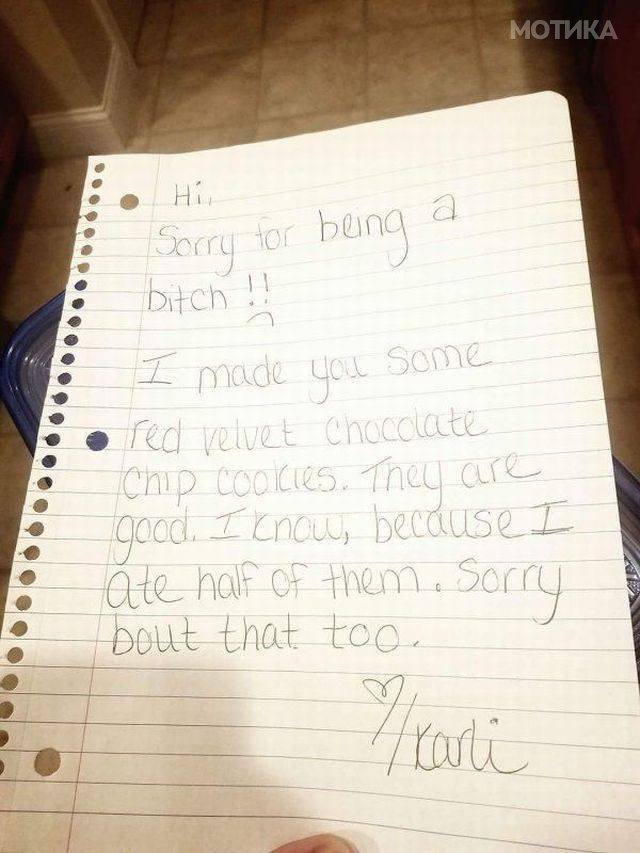 МОТИКА
Hi,
Sorry for being a
bitch !!
I made you some
red velvet chocolate
chip cookies. They are
good. I know, because I
ate half of them. Sorry
bout that too.
♡/Karli